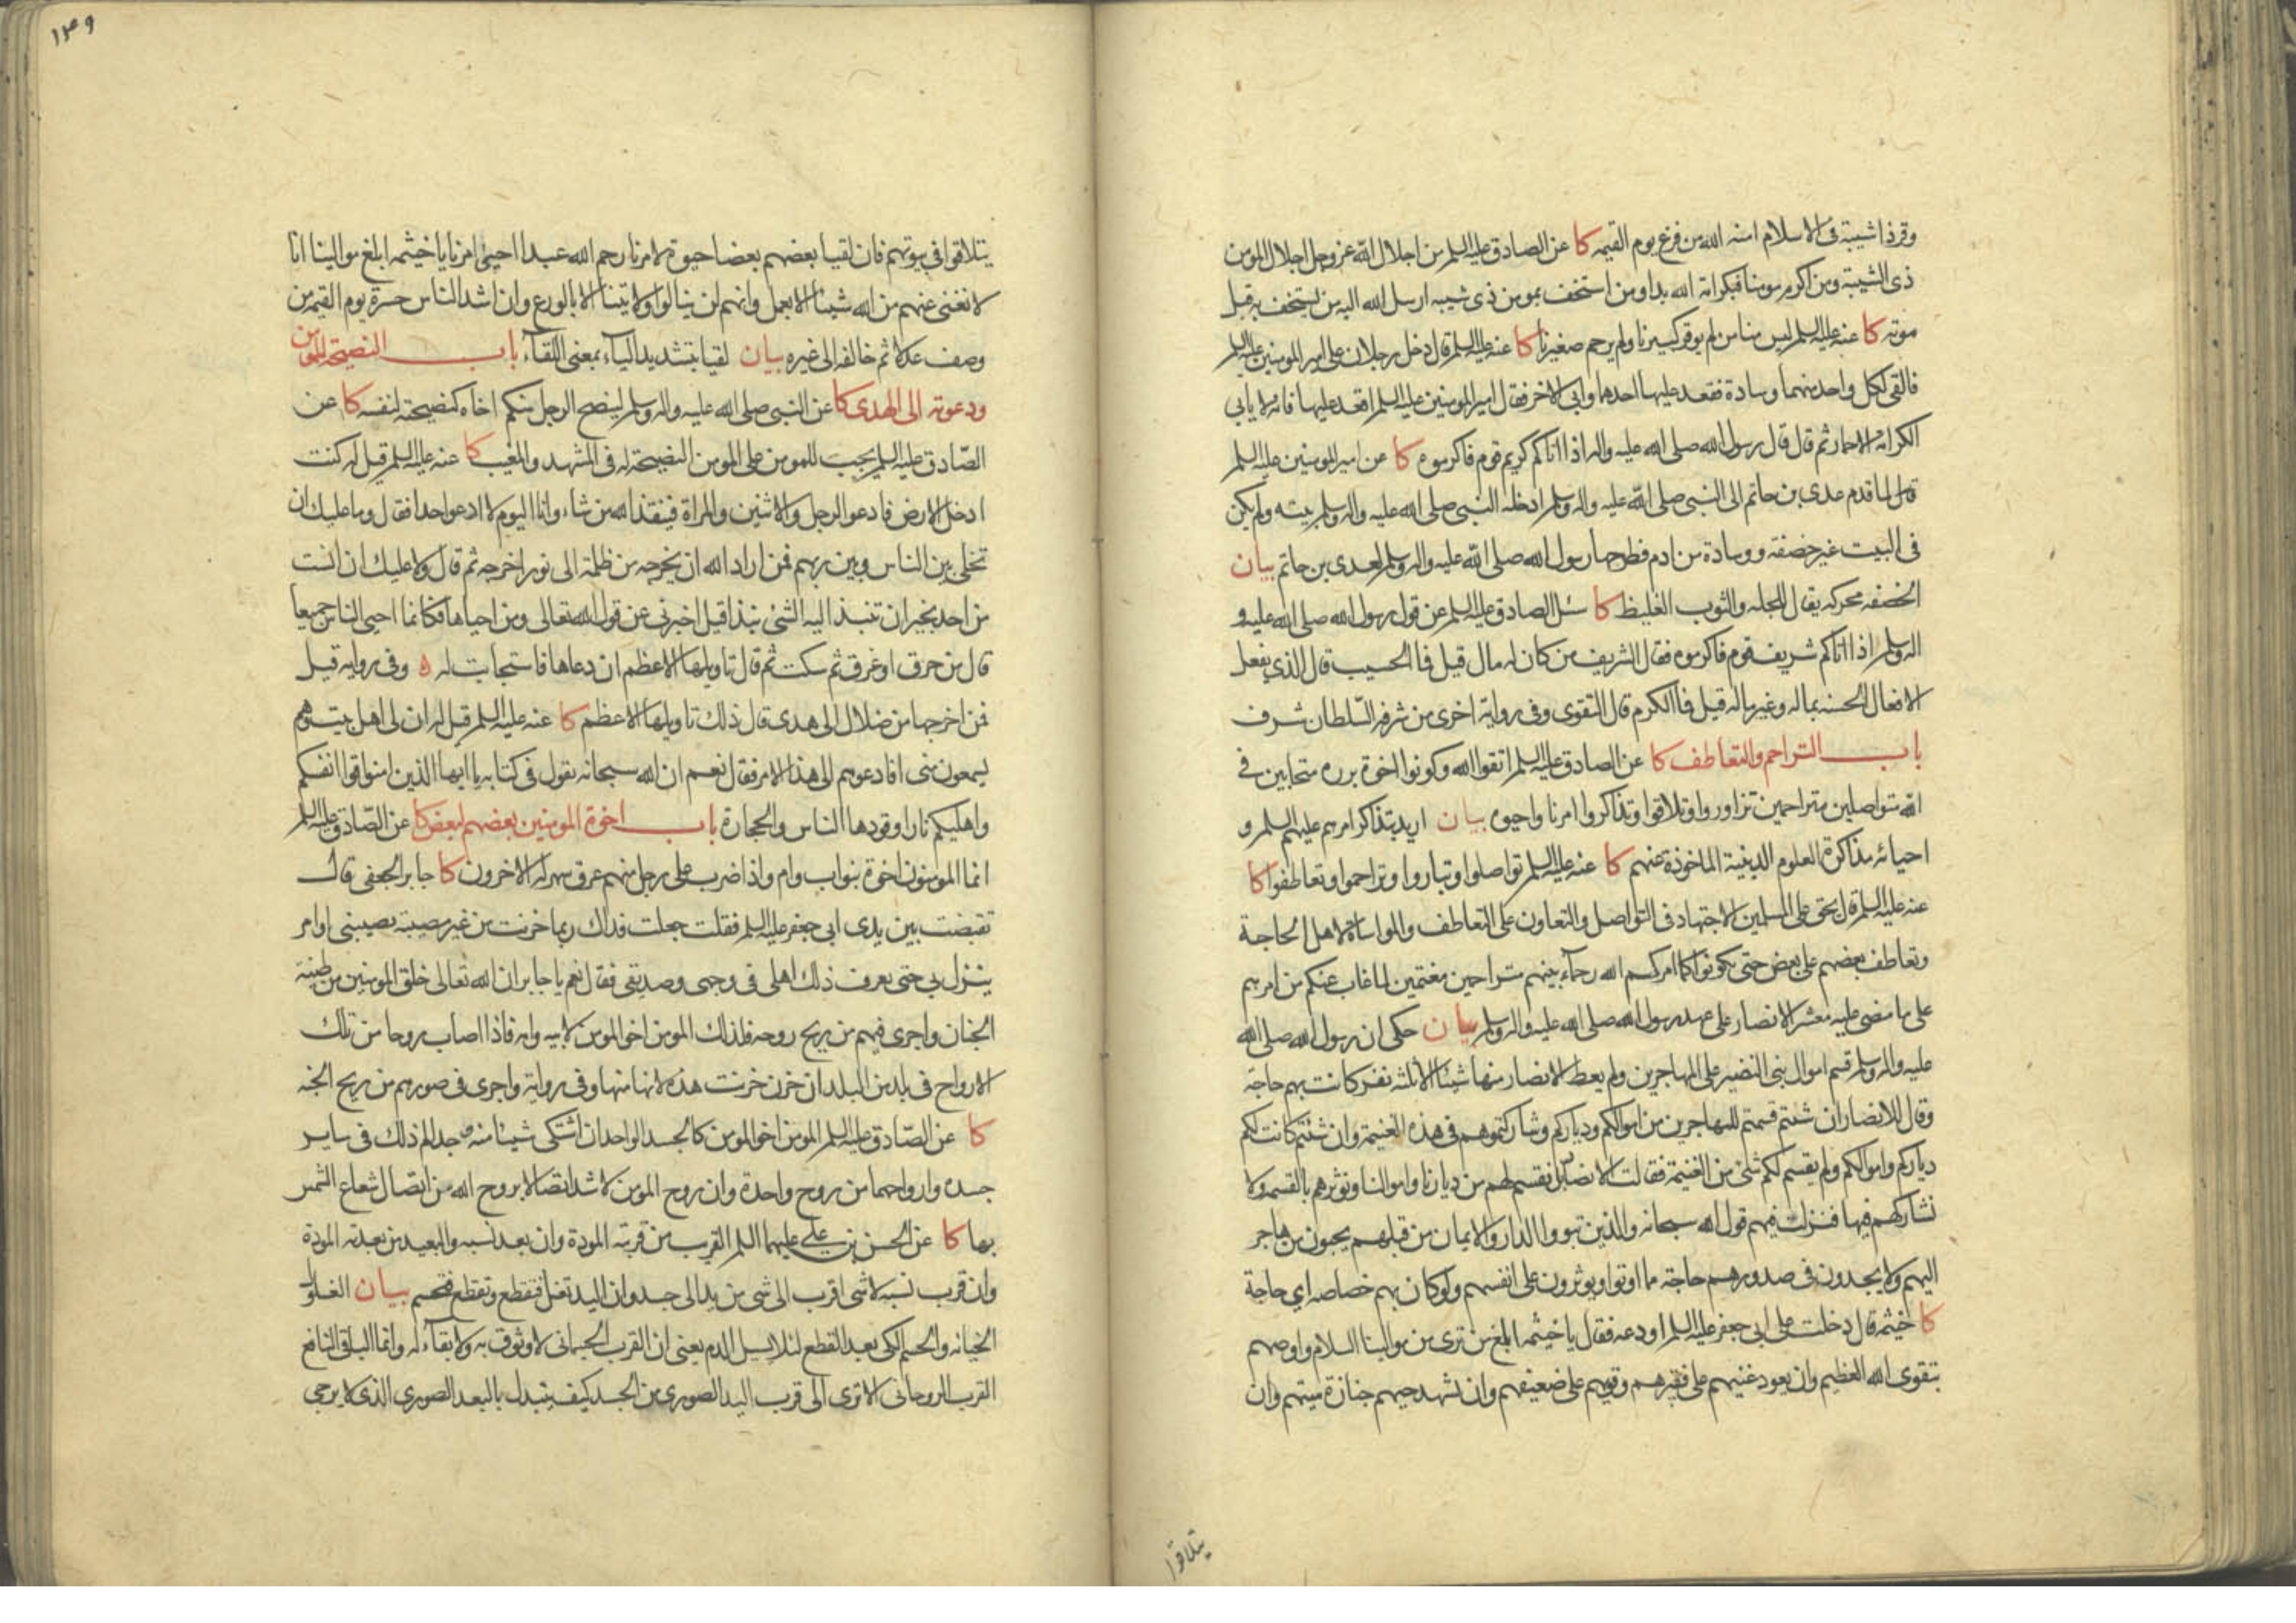 وقر ذا شيبة فى الاسلام امنه الله من فزع يوم القيمه كا عن الصادق عليه السلم من اجلال الله عز وجل اجلال المومن
ذى الشيبة ومن اكرم مومنا فبكرامة الله بدا ومن استخف بمومن ذى شيبه ارسل الله اليه من يستخف به قبل
موته كا عنه عليه السلم ليس منا من لم يوقر كبيرنا ولم يرحم صغيرنا كا عنه عليه السلم قال دخل رجلان على امير المومنين عليه السلم
فالقى لكل واحد منهما وسادة فقعد عليها احدهما وابى الاخر فقال امير المومنين عليه السلم اقعد عليها فانه لا يابى
الكرامة الا حمار ثم قال قال رسول الله صلى الله عليه واله اذا اتاكم كريم قوم فاكرموه كا عن امير المومنين عليه السلم
قال لما قدم عدى بن حاتم الى النبى صلى الله عليه واله وسلم ادخله النبى صلى الله عليه واله وسلم بيته ولم يكن
فى البيت غير خصفة ووسادة من ادم فطرحها رسول الله صلى الله عليه واله وسلم لعدى بن حاتم بيان
الخصفه محركه يقال للجله والثوب الغليظ كا سئل الصادق عليه السلم عن قول رسول الله صلى الله عليه و
اله وسلم اذا اتاكم شريف قوم فاكرموه فقال الشريف من كان له مال قيل فما الحسيب قال الذي يفعل
الافعال الحسنه بماله وغير ماله قيل فما الكرم قال التقوى وفى رواية اخرى من شرفه السلطان شرف
باب التراحم والتعاطف كا عن الصادق عليه السلم اتقوا الله وكونوا اخوة برره متحابين فى
الله متواصلين متراحمين تزاوروا وتلاقوا وتذاكروا امرنا واحيوه بيان اريد بتذاكر امرهم عليهم السلم و
احيائه مذاكرة العلوم الدينية الماخوذة عنهم كا عنه عليه السلم تواصلوا وتباروا وتراحموا وتعاطفوا كا
عنه عليه السلم قال يحق على المسلمين الاجتهاد فى التواصل والتعاون على التعاطف والمواساة لاهل الحاجة
وتعاطف بعضهم على بعض حتى يكونوا كما امركم الله رحماء بينهم متراحمين مغتمين لما غاب عنكم من امرهم
على ما مضى عليه معشر الانصار على عهد رسول الله صلى الله عليه واله وسلم بيان حكى ان رسول الله صلى الله
عليه واله وسلم قسم اموال بنى النضير على المهاجرين ولم يعط الانصار منها شيئا الا ثلثه نفر كانت بهم حاجة
وقال للانصار ان شئتم قسمتم للمهاجرين من اموالكم ودياركم وشاركتموهم فى هذه الغنيمة وان شئتم كانت لكم
دياركم واموالكم ولم يقسم لكم شئ من الغنيمة فقالت الانصار بل نقسم لهم من ديارنا واموالنا ونوثرهم بالقسمه ولا
نشاركهم فيها فنزلت فيهم قول الله سبحانه والذين تبووا الدار والايمان من قبلهم يحبون من هاجر
اليهم ولا يجدون فى صدورهم حاجة مما اوتوا ويوثرون على انفسهم ولو كان بهم خصاصه اى حاجة
كا خيثمه قال دخلت على ابى جعفر عليه السلم اودعه فقال يا خيثمه ابلغ من ترى من موالينا السلام واوصهم
بتقوى الله العظيم وان يعود غنيهم على فقيرهم وقويهم على ضعيفهم وان يشهد حيهم جنازة ميتهم وان
يتلاقوا
يتلاقوا فى بيوتهم فان لقيا بعضهم بعضا حيوة لامرنا رحم الله عبدا احيى امرنا يا خيثمه ابلغ موالينا انا
لا نغنى عنهم من الله شيئا الا بعمل وانهم لن ينالوا ولايتنا الا بالورع وان اشد الناس حسرة يوم القيمه من
وصف عدلا ثم خالفه الى غيره بيان لقيا بتشديد الياء بمعنى اللقاء باب النصيحة للمومن
ودعوته الى الهدى كا عن النبى صلى الله عليه واله وسلم لينصح الرجل منكم اخاه كنصيحته لنفسه كا عن
الصادق عليه السلم يجب للمومن على المومن النصيحة له فى المشهد والمغيب كا عنه عليه السلم قيل له كنت
ادخل الارض فادعو الرجل والاثنين والمراة فينقذ الله من شاء وانا اليوم لا ادعو احدا فقال وما عليك ان
تخلى بين الناس وبين ربهم فمن اراد الله ان يخرجه من ظلمة الى نور اخرجه ثم قال ولا عليك ان انست
من احد بخير ان تنبذ اليه الشئ نبذا قيل اخبرنى عن قول الله تعالى ومن احياها فكانما احيى الناس جميعا
قال من حرق او غرق ثم سكت ثم قال تاويلها الاعظم ان دعاها فاستجابت له ه وفى روايه قيل
فمن اخرجها من ضلال الى هدى قال ذلك تاويلها الاعظم كا عنه عليه السلم قيل له ان لى اهل بيت وهم
يسمعون منى افادعوهم الى هذا الامر فقال نعم ان الله سبحانه يقول فى كتابه يا ايها الذين امنوا قوا انفسكم
واهليكم نارا وقودها الناس والحجارة باب اخوة المومنين بعضهم لبعض كا عن الصادق عليه السلم
انما المومنون اخوة بنو اب وام واذا ضرب على رجل منهم عرق سهر له الاخرون كا جابر الجعفى قال
تقبضت بين يدى ابى جعفر عليه السلم فقلت جعلت فداك ربما حزنت من غير مصيبة تصيبنى او امر
ينزل بى حتى يعرف ذلك اهلى فى وجهى وصديقى فقال نعم يا جابر ان الله تعالى خلق المومنين من طينة
الجنان واجرى فيهم من ريح روحه فلذلك المومن اخو المومن لابيه وامه فاذا اصاب روحا من تلك
الارواح فى بلد من البلدان حزن حزنت هذه لانها منها وفى رواية واجرى فى صورهم من ريح الجنه
كا عن الصادق عليه السلم المومن اخو المومن كالجسد الواحد ان اشتكى شيئا منه وجد الم ذلك فى ساير
جسده وارواحهما من روح واحدة وان روح المومن لاشد اتصالا بروح الله من اتصال شعاع الشمس
بها كا عن الحسن بن على عليهما السلم القريب من قربته المودة وان بعد نسبه والبعيد من بعدته المودة
وان قرب نسبه لا شى اقرب الى شى من يد الى جسد وان اليد تغل فتقطع وتقطع فتحسم بيان الغلول
الخيانه والحسم الكى بعد القطع لئلا يسيل الدم يعنى ان القرب الجسمانى لا وثوق به ولا بقاء له وانما الباقى النافع
القرب الروحانى الا ترى الى قرب اليد الصورى من الجسد كيف يتبدل بالبعد الصورى الذى لا يرجى